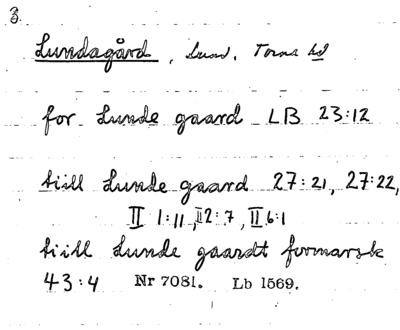 3.
Lundagård, Lund. Torna hd
for Lunde gaard LB 23:12
tiill Lunde gaard 27:21, 27:22,
II 1:11, II 2:7, II 6:1
tiill Lunde gaardt formarsk
43:4 Nr 7081. Lb 1569.